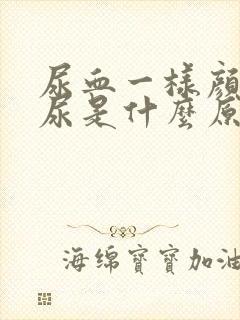 尿血一樣顔
尿是什麼原
海绵寶寶加油